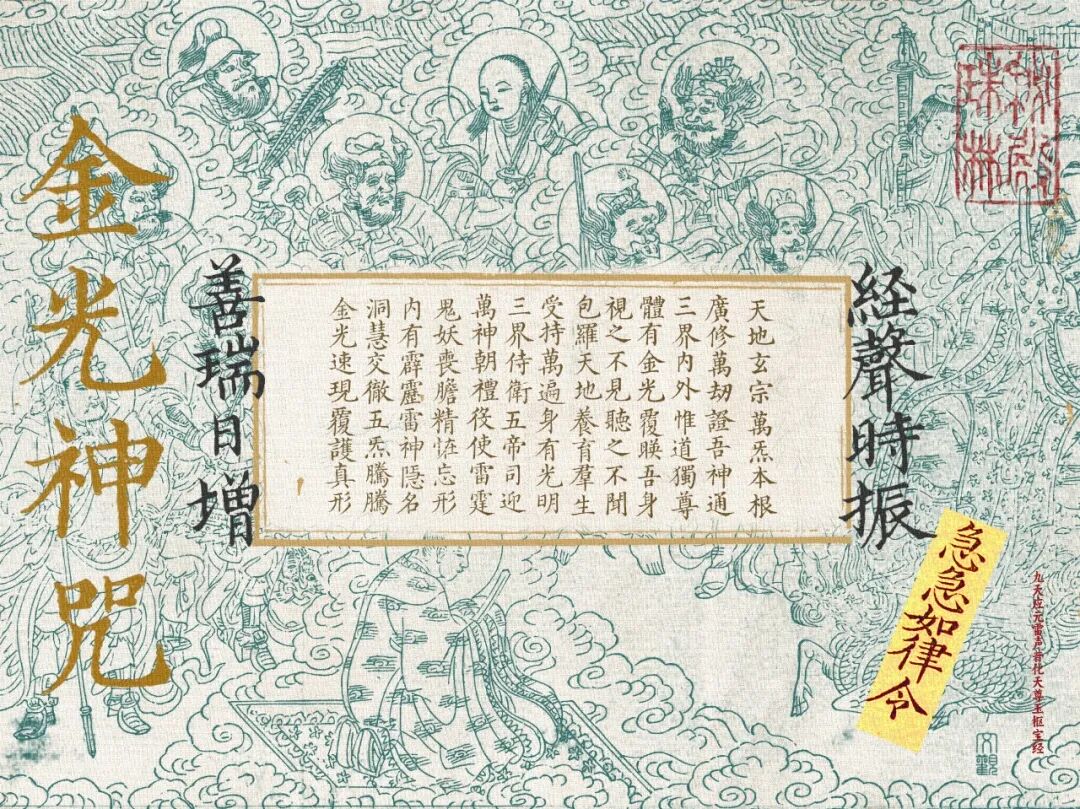 経聲時振
天地玄宗萬炁本根
廣修萬劫證吾神通
三界内外惟道獨尊
體有金光覆暎吾身
視之不見聽之不聞
包羅天地養育羣生
受持萬遍身有光明
三界侍衛五帝司迎
萬神朝禮役使雷霆
鬼妖喪膽精怪忘形
内有霹靂雷神隱名
洞慧交徹五炁騰騰
金光速現覆護真形
善瑞日增
金光神咒
急急如律令
九天应元雷声普化天尊玉枢宝经